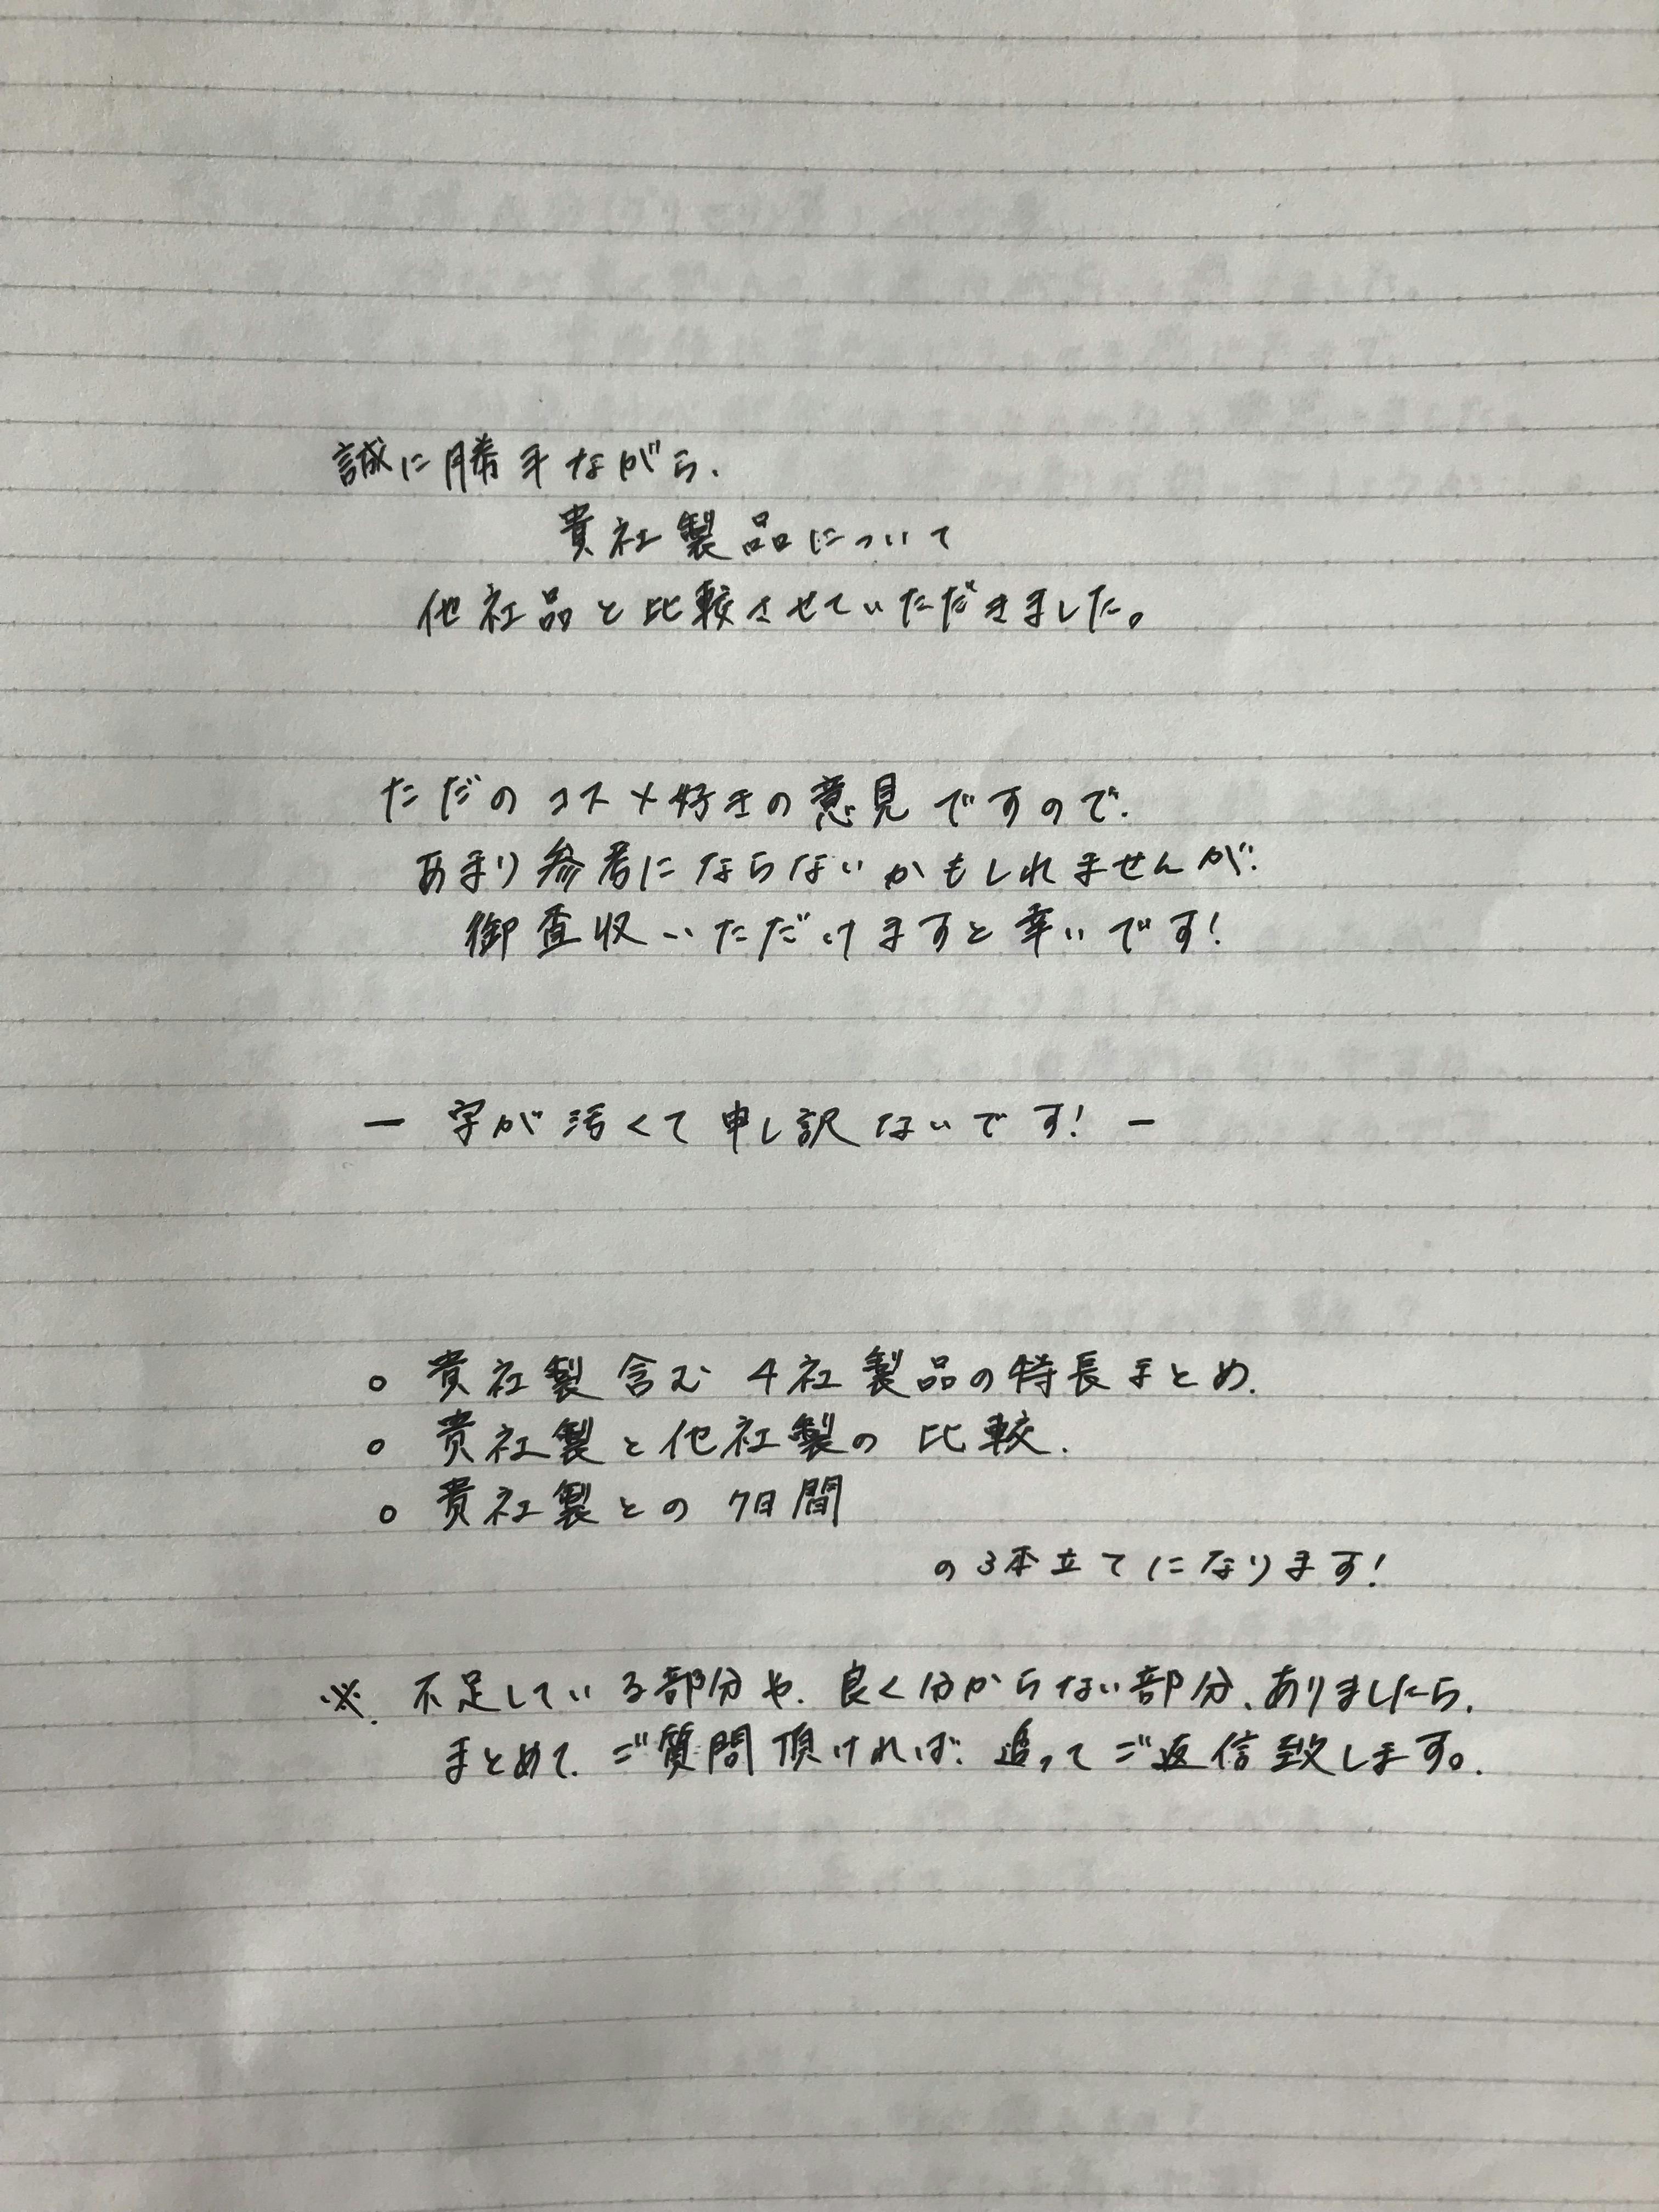 誠に勝手ながら、
貴社製品について
他社品と比較させていただきました。
ただのコスメ好きの意見ですので、
あまり参考にならないかもしれませんが、
御査収いただけますと幸いです!
ー 字が汚くて申し訳ないです! ー
○ 貴社製含む4社製品の特長まとめ、
○ 貴社製と他社製の比較、
○ 貴社製との7日間
の3本立てになります!
※、不足している部分や、良く分からない部分、ありましたら、
まとめて、ご質問頂ければ、追ってご返信致します。